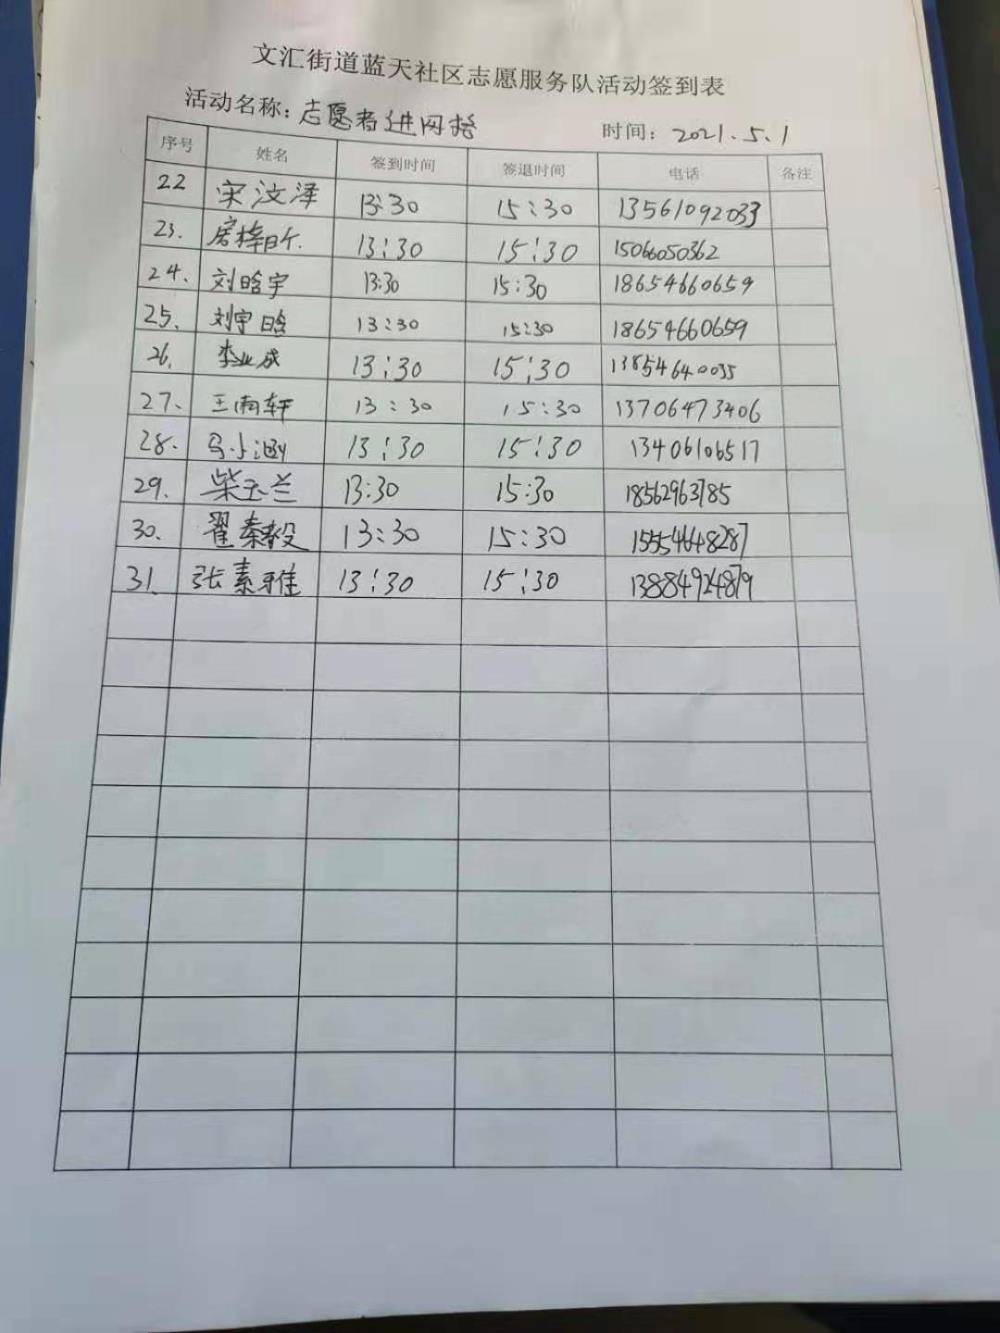 文汇街道蓝天社区志愿服务队活动签到表
活动名称：志愿者进网格 时间：2021.5.1
序号 姓名 签到时间 签退时间 电话 备注
22 宋汶泽 13:30 15:30 13561092033
23. 13:30 15:30 15066050362
24. 刘晗宇 13:30 15:30 18654660659
25. 刘宇晗 13:30 15:30 18654660659
26. 李业成 13:30 15:30 13854640035
27. 王雨轩 13:30 15:30 13706473406
28. 马小涵 13:30 15:30 13406106517
29. 柴玉兰 13:30 15:30 18562963785
30. 翟秦毅 13:30 15:30 15554648287
31. 张素雅 13:30 15:30 13884924879